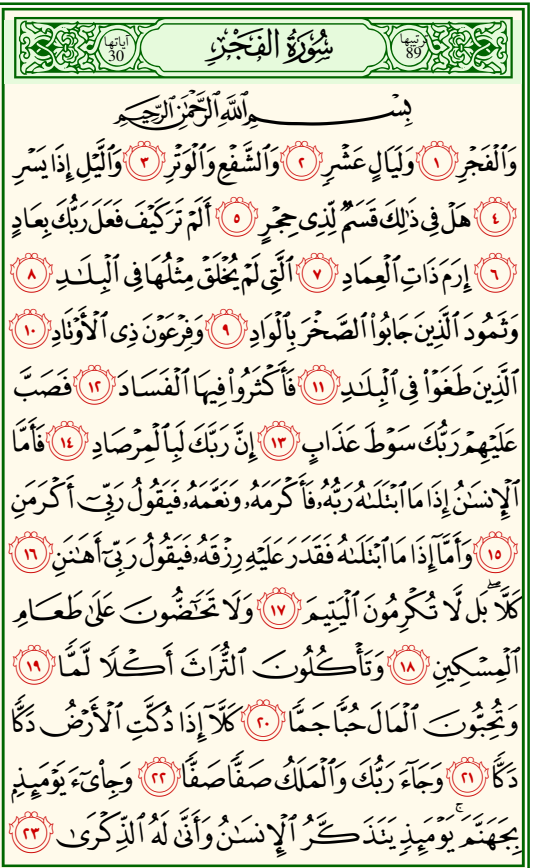 ترتيبها 89 سُورَةُ الفَجْرِ آياتها 30
بِسْمِ ٱللَّهِ ٱلرَّحْمَٰنِ ٱلرَّحِيمِ
وَٱلْفَجْرِ ١ وَلَيَالٍ عَشْرٍ ٢ وَٱلشَّفْعِ وَٱلْوَتْرِ ٣ وَٱلَّيْلِ إِذَا يَسْرِ
٤ هَلْ فِى ذَٰلِكَ قَسَمٌ لِّذِى حِجْرٍ ٥ أَلَمْ تَرَ كَيْفَ فَعَلَ رَبُّكَ بِعَادٍ
٦ إِرَمَ ذَاتِ ٱلْعِمَادِ ٧ ٱلَّتِى لَمْ يُخْلَقْ مِثْلُهَا فِى ٱلْبِلَٰدِ ٨
وَثَمُودَ ٱلَّذِينَ جَابُوا۟ ٱلصَّخْرَ بِٱلْوَادِ ٩ وَفِرْعَوْنَ ذِى ٱلْأَوْتَادِ ١٠
ٱلَّذِينَ طَغَوْا۟ فِى ٱلْبِلَٰدِ ١١ فَأَكْثَرُوا۟ فِيهَا ٱلْفَسَادَ ١٢ فَصَبَّ
عَلَيْهِمْ رَبُّكَ سَوْطَ عَذَابٍ ١٣ إِنَّ رَبَّكَ لَبِٱلْمِرْصَادِ ١٤ فَأَمَّا
ٱلْإِنسَٰنُ إِذَا مَا ٱبْتَلَىٰهُ رَبُّهُۥ فَأَكْرَمَهُۥ وَنَعَّمَهُۥ فَيَقُولُ رَبِّىٓ أَكْرَمَنِ
١٥ وَأَمَّآ إِذَا مَا ٱبْتَلَىٰهُ فَقَدَرَ عَلَيْهِ رِزْقَهُۥ فَيَقُولُ رَبِّىٓ أَهَٰنَنِ ١٦
كَلَّا ۖ بَل لَّا تُكْرِمُونَ ٱلْيَتِيمَ ١٧ وَلَا تَحَٰٓضُّونَ عَلَىٰ طَعَامِ
ٱلْمِسْكِينِ ١٨ وَتَأْكُلُونَ ٱلتُّرَاثَ أَكْلًا لَّمًّا ١٩
وَتُحِبُّونَ ٱلْمَالَ حُبًّا جَمًّا ٢٠ كَلَّآ إِذَا دُكَّتِ ٱلْأَرْضُ دَكًّا
دَكًّا ٢١ وَجَآءَ رَبُّكَ وَٱلْمَلَكُ صَفًّا صَفًّا ٢٢ وَجِا۟ىٓءَ يَوْمَئِذٍۭ
بِجَهَنَّمَ ۚ يَوْمَئِذٍ يَتَذَكَّرُ ٱلْإِنسَٰنُ وَأَنَّىٰ لَهُ ٱلذِّكْرَىٰ ٢٣